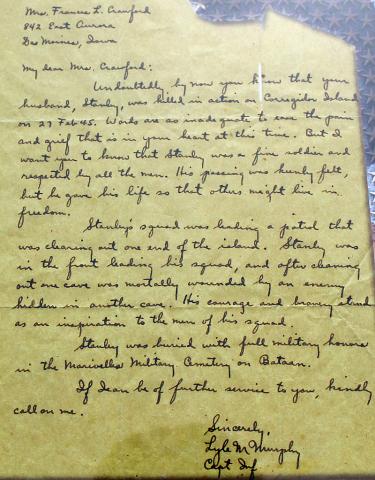 Mrs. Frances L. Crawford
842 East Aurora
Des Moines, Iowa
My dear Mrs. Crawford:
Undoubtedly by now you know that your
husband, Stanley, was killed in action on Corregidor Island
on 27 Feb 45. Words are so inadequate to ease the pain
and grief that is in your heart at this time. But I
want you to know that Stanley was a fine soldier and
respected by all the men. His passing was keenly felt,
but he gave his life so that others might live in
freedom.
Stanley's squad was leading a patrol that
was clearing out one end of the island. Stanley was
in the front leading his squad, and after cleaning
out one cave was mortally wounded by an enemy
hidden in another cave. His courage and bravery stand
as an inspiration to the men of his squad.
Stanley was buried with full military honors
in the Marivelles Military Cemetery on Bataan.
If I can be of further service to you, kindly
call on me.
Sincerely,
Lyle M Murphy
Capt Inf.